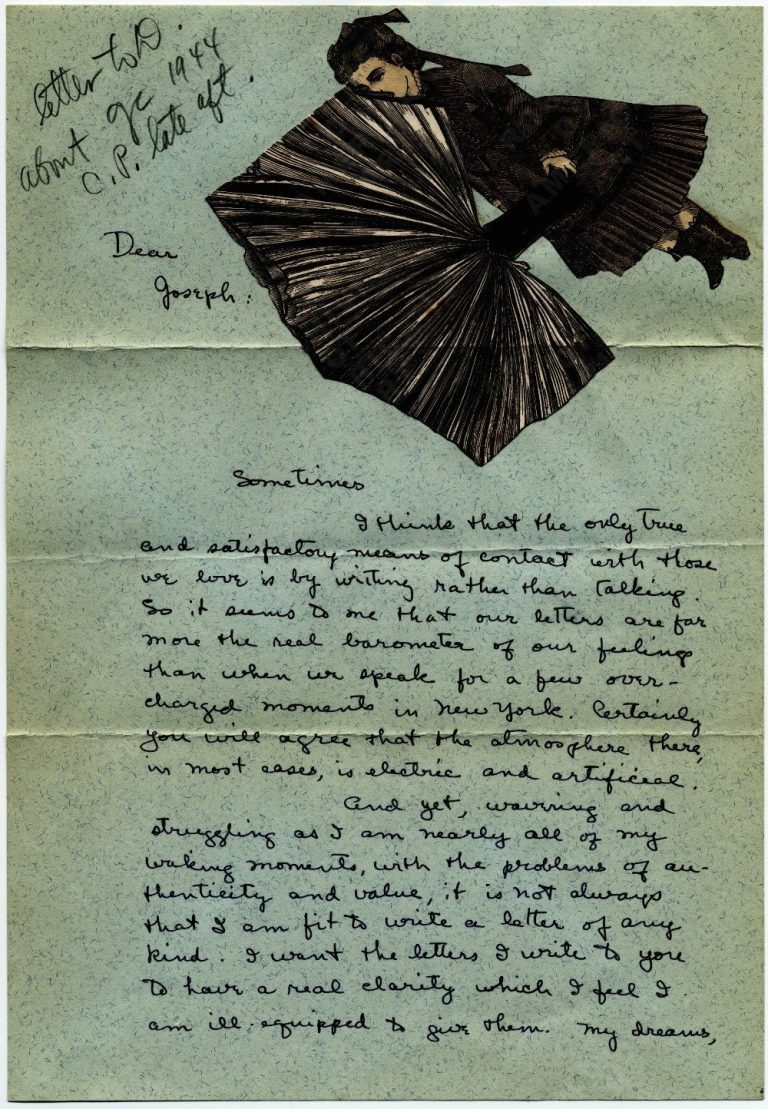 letter to D.
about gc 1944
C.P. late aft.
Dear
Joseph:
Sometimes
I think that the only true
and satisfactory means of contact with those
we love is by writing rather than talking.
So it seems to me that our letters are far
more the real barometer of our feelings
than when we speak for a few over-
charged moments in New York. Certainly
you will agree that the atmosphere there,
in most cases, is electric and artificial.
And yet, wavering and
struggling as I am nearly all of my
waking moments, with the problems of au-
thenticity and value, it is not always
that I am fit to write a letter of any
kind. I want the letters I write to you
to have a real clarity which I feel I
am ill-equipped to give them. My dreams,